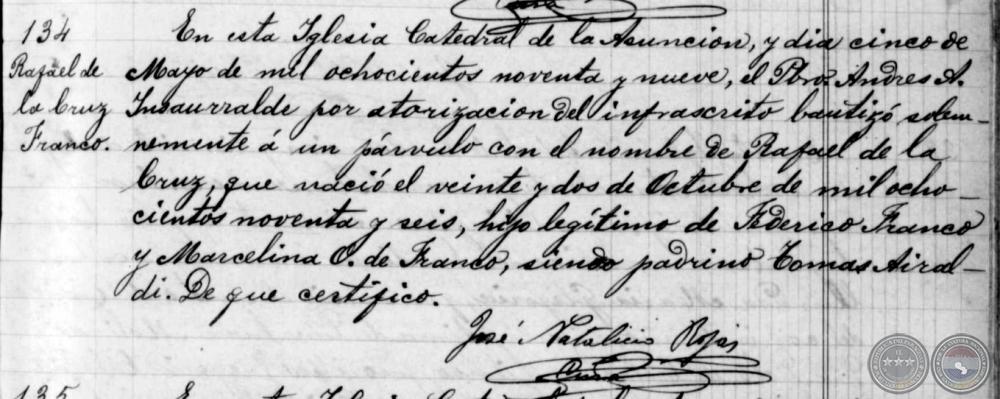 134
Rafael de
la Cruz
Franco.
En esta Iglesia Catedral de la Asuncion, y dia cinco de
Mayo de mil ochocientos noventa y nueve, el Pbro. Andres A.
Insaurralde por atorizacion del infrascrito bautizó solem-
nemente á un párvulo con el nombre de Rafael de la
Cruz, que nació el veinte y dos de Octubre de mil ocho-
cientos noventa y seis, hijo legítimo de Federico Franco
y Marcelina O. de Franco, siendo padrino Tomas Airal-
di. De que certifico.
José Natalicio Rojas
Cura
135
En esta Iglesia